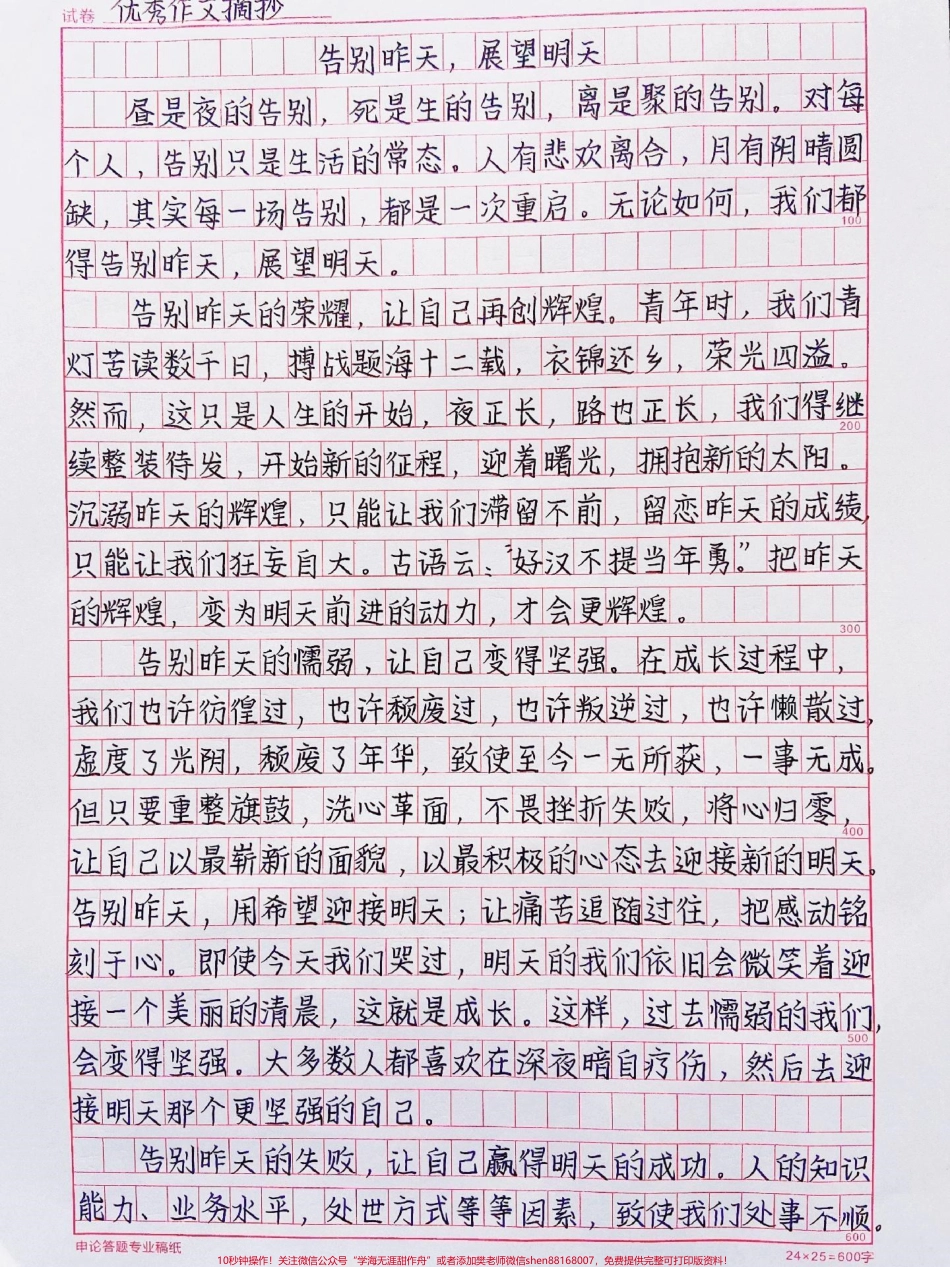 试卷 优秀作文摘抄
告别昨天，展望明天
昼是夜的告别，死是生的告别，离是聚的告别。对每
个人，告别只是生活的常态。人有悲欢离合，月有阴晴圆
缺，其实每一场告别，都是一次重启。无论如何，我们都
100
得告别昨天，展望明天。
告别昨天的荣耀，让自己再创辉煌。青年时，我们青
灯苦读数千日，搏战题海十二载，衣锦还乡，荣光四溢。
然而，这只是人生的开始，夜正长，路也正长，我们得继
200
续整装待发，开始新的征程，迎着曙光，拥抱新的太阳。
沉溺昨天的辉煌，只能让我们滞留不前，留恋昨天的成绩，
只能让我们狂妄自大。古语云：“好汉不提当年勇。”把昨天
的辉煌，变为明天前进的动力，才会更辉煌。
300
告别昨天的懦弱，让自己变得坚强。在成长过程中，
我们也许彷徨过，也许颓废过，也许叛逆过，也许懒散过，
虚度了光阴，颓废了年华，致使至今一无所获，一事无成。
但只要重整旗鼓，洗心革面，不畏挫折失败，将心归零，
400
让自己以最崭新的面貌，以最积极的心态去迎接新的明天。
告别昨天，用希望迎接明天；让痛苦追随过往，把感动铭
刻于心。即使今天我们哭过，明天的我们依旧会微笑着迎
接一个美丽的清晨，这就是成长。这样，过去懦弱的我们，
500
会变得坚强。大多数人都喜欢在深夜暗自疗伤，然后去迎
接明天那个更坚强的自己。
告别昨天的失败，让自己赢得明天的成功。人的知识
能力、业务水平，处世方式等等因素，致使我们处事不顺。
600
申论答题专业稿纸 24×25=600字
10秒钟操作！关注微信公众号“学海无涯甜作舟”或者添加樊老师微信shen88168007，免费提供完整可打印版资料！